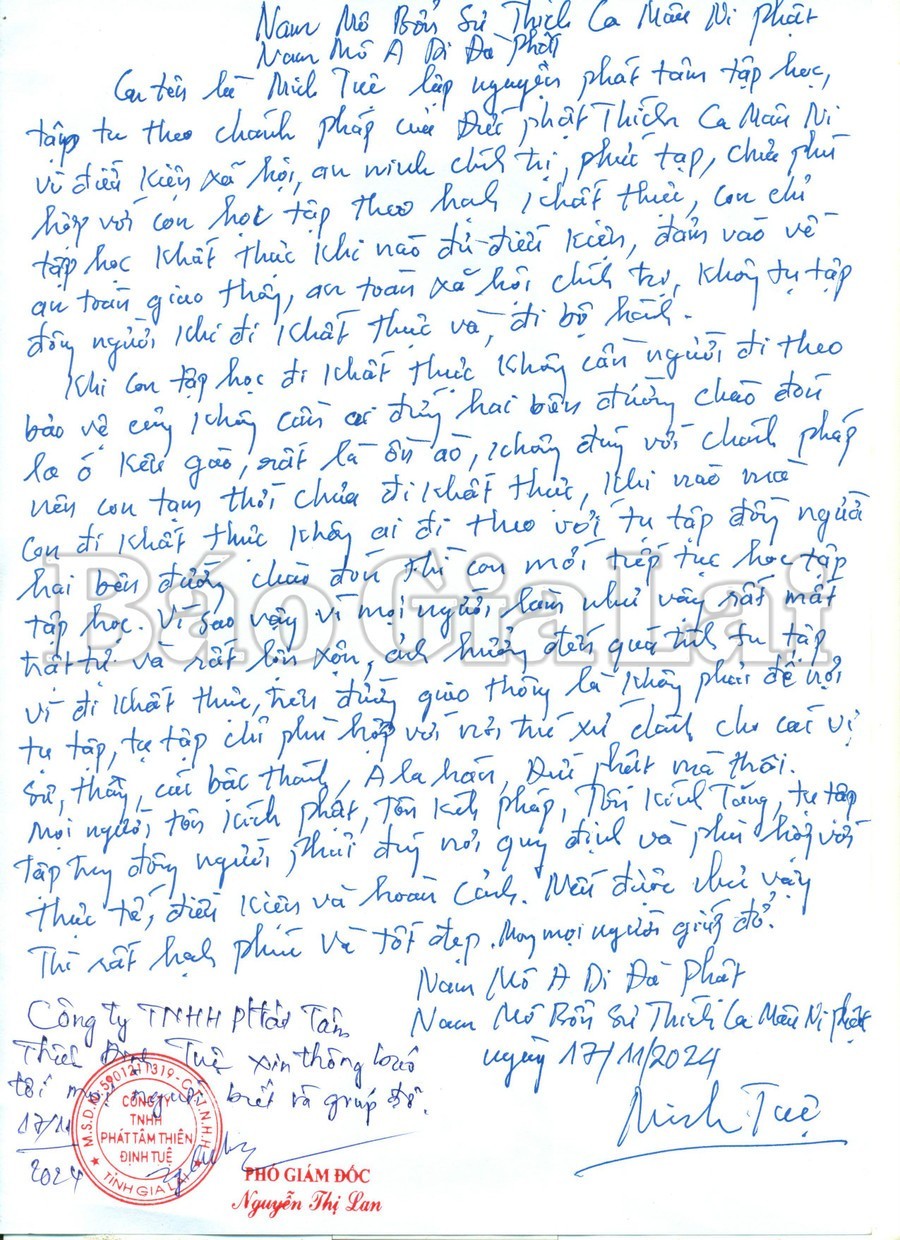 Nam Mô Bổn Sư Thích Ca Mâu Ni Phật
Nam Mô A Di Đà Phật
Con tên là Minh Tuệ lập nguyện phát tâm tập học,
tập tu theo chánh pháp của Đức phật Thích Ca Mâu Ni
vì điều kiện xã hội, an ninh chính trị, phức tạp, chưa phù
hợp với con học tập theo hạnh khất thực, con chỉ
tập học khất thực khi nào đủ điều kiện, đảm vảo về
an toàn giao thông, an toàn xã hội chính trị, không tụ tập
đông người khi đi khất thực và, đi bộ hành.
Khi con tập học đi khất thực không cần người đi theo
bảo vệ cũng không cần ai đứng hai bên đường chào đón
la ó kêu gào, rất là ồn ào, không đúng với chánh pháp
nên con tạm thời chưa đi khất thực, khi nào mà
con đi khất thực không ai đi theo với tụ tập đông người
hai bên đường chào đón thì con mới tiếp tục học tập
tập học. Vì sao vậy vì mọi người làm như vậy rất mất
trật tự và rất lộn xộn, ảnh hưởng đến quá trình tu tập
vì đi khất thực, trên đường giao thông là không phải để nơi
tụ tập, tụ tập chỉ phù hợp với nơi trú xứ dành cho các vị
sư, thầy, các bậc thánh, A la hán, Đức phật mà thôi.
Mọi người tôn kính phật, tôn kính pháp, Tôn kính Tăng, tụ tập
tập trung đông người phải đúng nơi quy định và phù hợp với
thực tế, điều kiện và hoàn cảnh. Nếu được như vậy
thì rất hạnh phúc và tốt đẹp. Mong mọi người giúp đỡ.
Nam Mô A Di Đà Phật
Nam Mô Bổn Sư Thích Ca Mâu Ni phật
ngày 17/11/2024
Minh Tuệ
Công ty TNHH Phát Tâm
Thiền Định Tuệ xin thông báo
tới mọi người biết và giúp đỡ.
17/11
2024
M.S.D.N: 5901211319 - C.T.T.N.H.H
CÔNG TY
TNHH
PHÁT TÂM THIỀN
ĐỊNH TUỆ
TỈNH GIA LAI
PHÓ GIÁM ĐỐC
Nguyễn Thị Lan
Báo Gia Lai